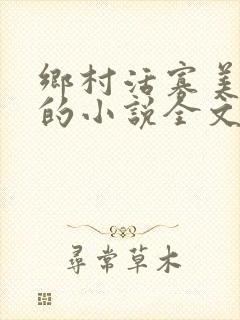 鄉村活寡美
的小說全文
尋常草木